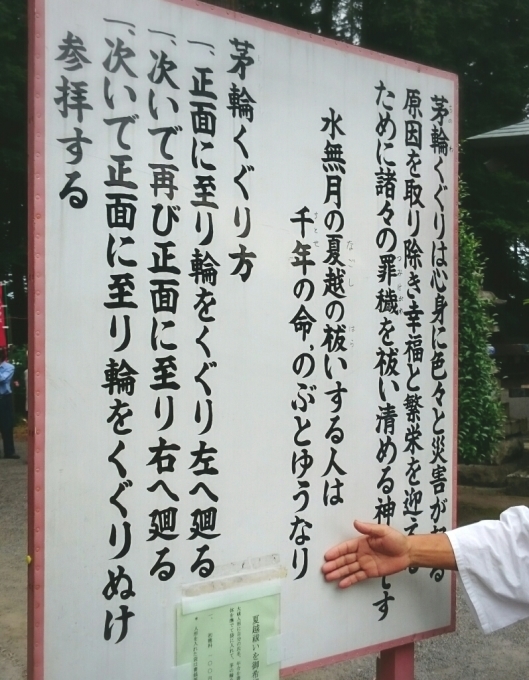 茅輪くぐりは心身に色々と災害が
原因を取り除き幸福と繁栄を迎え
ために諸々の罪穢を祓い清める神
です
水無月の夏越の祓いする人は
千年の命、のぶとゆうなり
茅輪くぐり方
一、正面に至り輪をくぐり左へ廻る
一、次いで再び正面に至り右へ廻る
一、次いで正面に至り輪をくぐりぬけ
参拝する
夏越祓いを御希